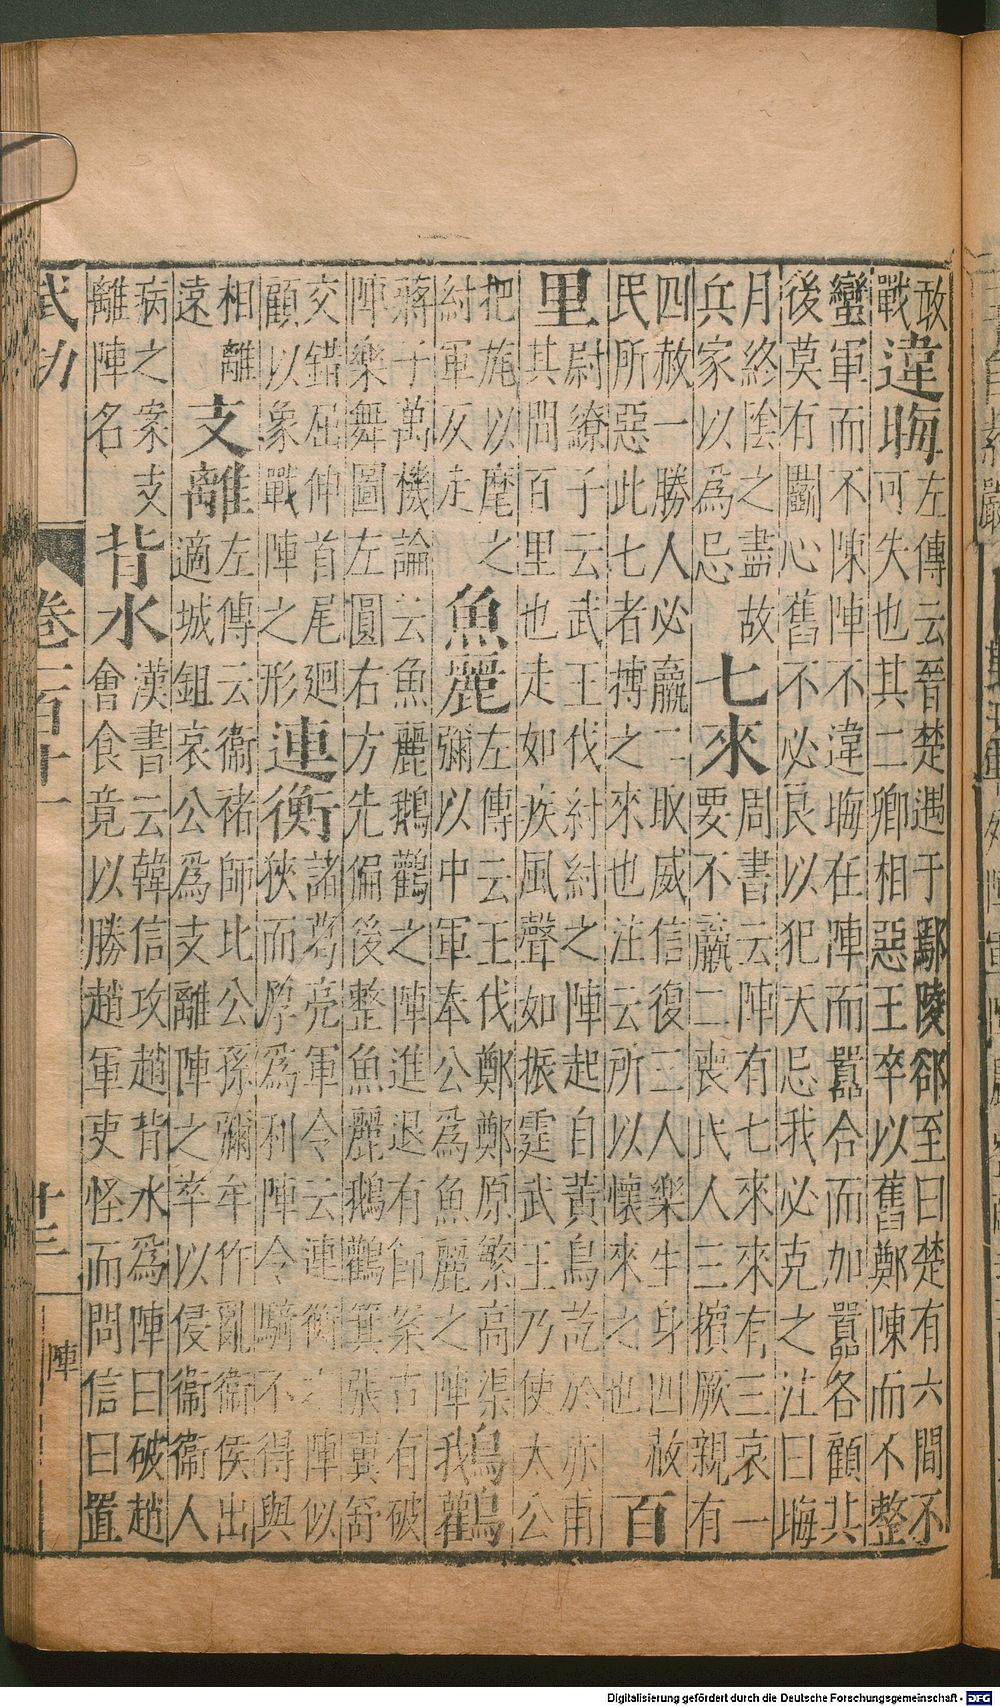 敢
戰違晦左傳云晉楚遇于鄢陵郤至曰楚有六間不
可失也其二卿相惡王卒以舊鄭陳而不整
蠻軍而不陳陣不違晦在陣而嚻合而加嚻各顧其
後莫有鬬心舊不必良以犯天忌我必克之注曰晦
月終陰之盡故
兵家以爲忌七來周書云陣有七來來有三哀一
要不羸二喪人三擯厥親有
四赦一勝人必羸二取威信復三人樂生身四赦
民所惡此七者摶之來也注云所以懷來之也百
里尉繚子云武王伐紂紂之陣起自黃鳥訖於赤甫
其間百里也走如疾風聲如振霆武王乃使太公
把旄以麾之
紂軍反走魚麗左傳云王伐鄭鄭原繁高渠
彌以中軍奉公爲魚麗之陣我鵝鸛
蔣子萬機論云魚麗鵝鸛之陣進退有節案古有破
陣樂舞圖左圓右方先偏後整魚麗鵝鸛箕張翼舒
交錯屈伸首尾迴
顧以象戰陣之形連衡諸葛亮軍令云連衡之陣似
狹而厚爲利陣令騎不得與
相離
遠支離左傳云衞褚師比公孫彌牟作亂衞侯出
適城鉏哀公爲支離陣之卒以侵衞衞人
病之案支
離陣名背水漢書云韓信攻趙背水爲陣曰破趙
會食竟以勝趙軍吏怪而問信曰置
武功
卷一百十一
廿三
陣
Digitalisierung gefördert durch die Deutsche Forschungsgemeinschaft - DFG